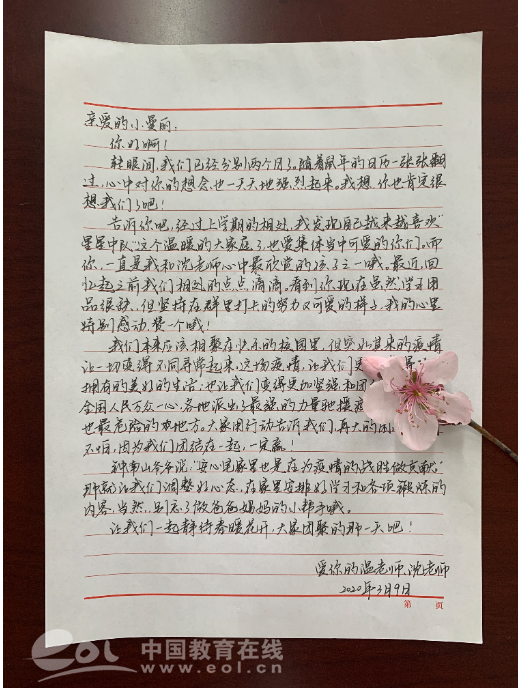 亲爱的小曼丽：
你好啊！
转眼间，我们已经分别两个月了。随着鼠年的日历一张张翻
过，心中对你的想念也一天天地强烈起来。我想，你也肯定很
想我们了吧！
告诉你吧，经过上学期的相处，我发现自己越来越喜欢“
星星中队”这个温暖的大家庭了，也爱集体当中可爱的你们。而
你，一直是我和沈老师心中最欣赏的孩子之一哦。最近，回
忆起之前我们相处的点点滴滴。看到你现在虽然学习用
品很缺，但坚持在群里打卡的努力又可爱的样子，我的心里
特别感动，赞一个哦！
我们本来应该相聚在快乐的校园里，但突如其来的疫情
让一切变得不同寻常起来，这场疫情，让我们更
拥有的美好的生活，也让我们变得更加坚强和团
全国人民万众一心，各地派出了最强的力量驰援疫
也最危险的地方。大家用行动告诉我们，再大的困
不怕，因为我们团结在一起，一定赢！
钟南山爷爷说：“安心宅家里也是在为疫情的战胜做贡献”
那就让我们调整好心态，在家里安排好学习和各项锻炼的
内容，当然，别忘了做爸爸妈妈的小帮手哦。
让我们一起静待春暖花开，大家团聚的那一天吧！
爱你的温老师、沈老师
2020年3月9日
第 页
eol 中国教育在线
www.eol.cn